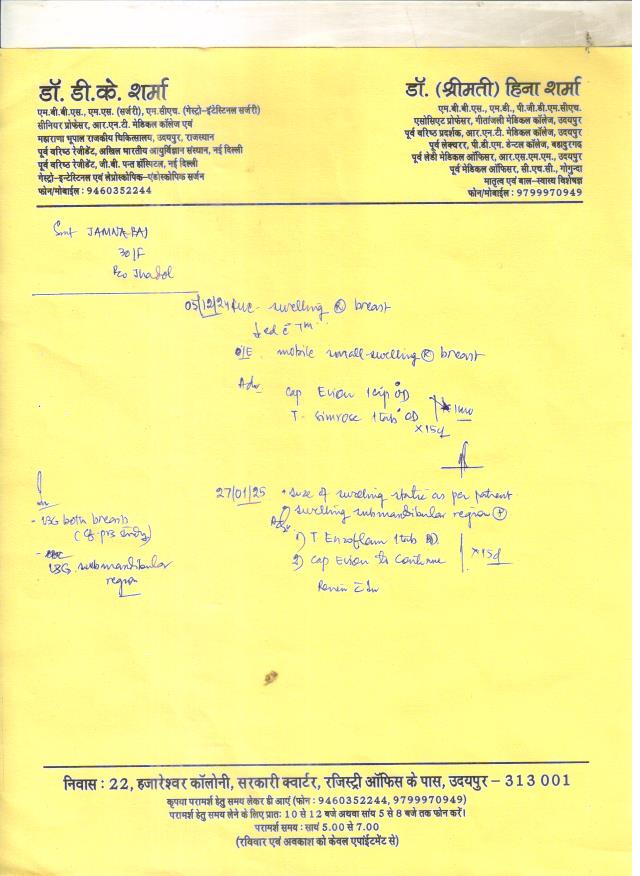 डॉ. डी.के. शर्मा
एम.बी.बी.एस., एम.एस. (सर्जरी), एम.सीएच. (गेस्ट्रो-इंटेस्टिनल सर्जरी)
सीनियर प्रोफेसर, आर.एन.टी. मेडिकल कॉलेज एवं
महाराणा भूपाल राजकीय चिकित्सालय, उदयपुर, राजस्थान
पूर्व वरिष्ठ रेजीडेंट, अखिल भारतीय आयुर्विज्ञान संस्थान, नई दिल्ली
पूर्व वरिष्ठ रेजीडेंट, जी.बी. पन्त हॉस्पिटल, नई दिल्ली
गेस्ट्रो-इन्टेस्टिनल एवं लेप्रोस्कोपिक-एंडोस्कोपिक सर्जन
फोन/मोबाईल : 9460352244
डॉ. (श्रीमती) हिना शर्मा
एम.बी.बी.एस., एम.डी., पी.जी.डी.एम.सीएच.
एसोसिएट प्रोफेसर, गीतांजली मेडिकल कॉलेज, उदयपुर
पूर्व वरिष्ठ प्रदर्शक, आर.एन.टी. मेडिकल कॉलेज, उदयपुर
पूर्व लेक्चरर, पी.डी.एम. डेन्टल कॉलेज, बहादुरगढ़
पूर्व लेडी मेडिकल ऑफिसर, आर.एस.एम.एम., उदयपुर
पूर्व मेडिकल ऑफिसर, सी.एच.सी., गोगुन्दा
मातृत्व एवं बाल-स्वास्थ्य विशेषज्ञ
फोन/मोबाईल : 9799970949
Smt JAMNA BAI
30/F
R/o Jhadol
05/12/24 swelling (R) breast
O/E mobile small swelling (R) breast
Adv
Cap Evion 1 cap OD
T. 1 tab OD
x 15d
27/01/25 • Size of swelling static as per patient
swelling submandibular region (+)
1) T Enzoflam 1 tab
2) Cap Evion to Continue
x 15d
Review
- USG both breasts
- USG submandibular
region
निवास : 22, हजारेश्वर कॉलोनी, सरकारी क्वार्टर, रजिस्ट्री ऑफिस के पास, उदयपुर – 313 001
कृपया परामर्श हेतु समय लेकर ही आएं (फोन : 9460352244, 9799970949)
परामर्श हेतु समय लेने के लिए प्रातः 10 से 12 बजे अथवा सांय 5 से 8 बजे तक फोन करें।
परामर्श समय : सायं 5.00 से 7.00
(रविवार एवं अवकाश को केवल एपांईटमेंट से)